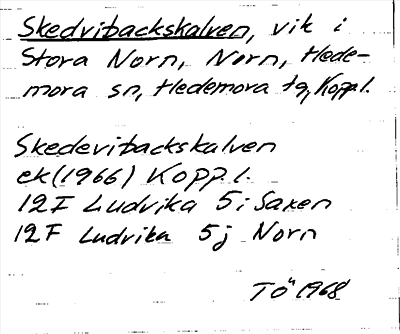 Skedvibackskalven, vik i
Stora Norn, Norn, Hede-
mora sn, Hedemora tg, Koppl.
Skedevibackskalven
ek (1966) Koppl.
12F Ludvika 5i Saxen
12F Ludvika 5j Norn
TÖ 1968